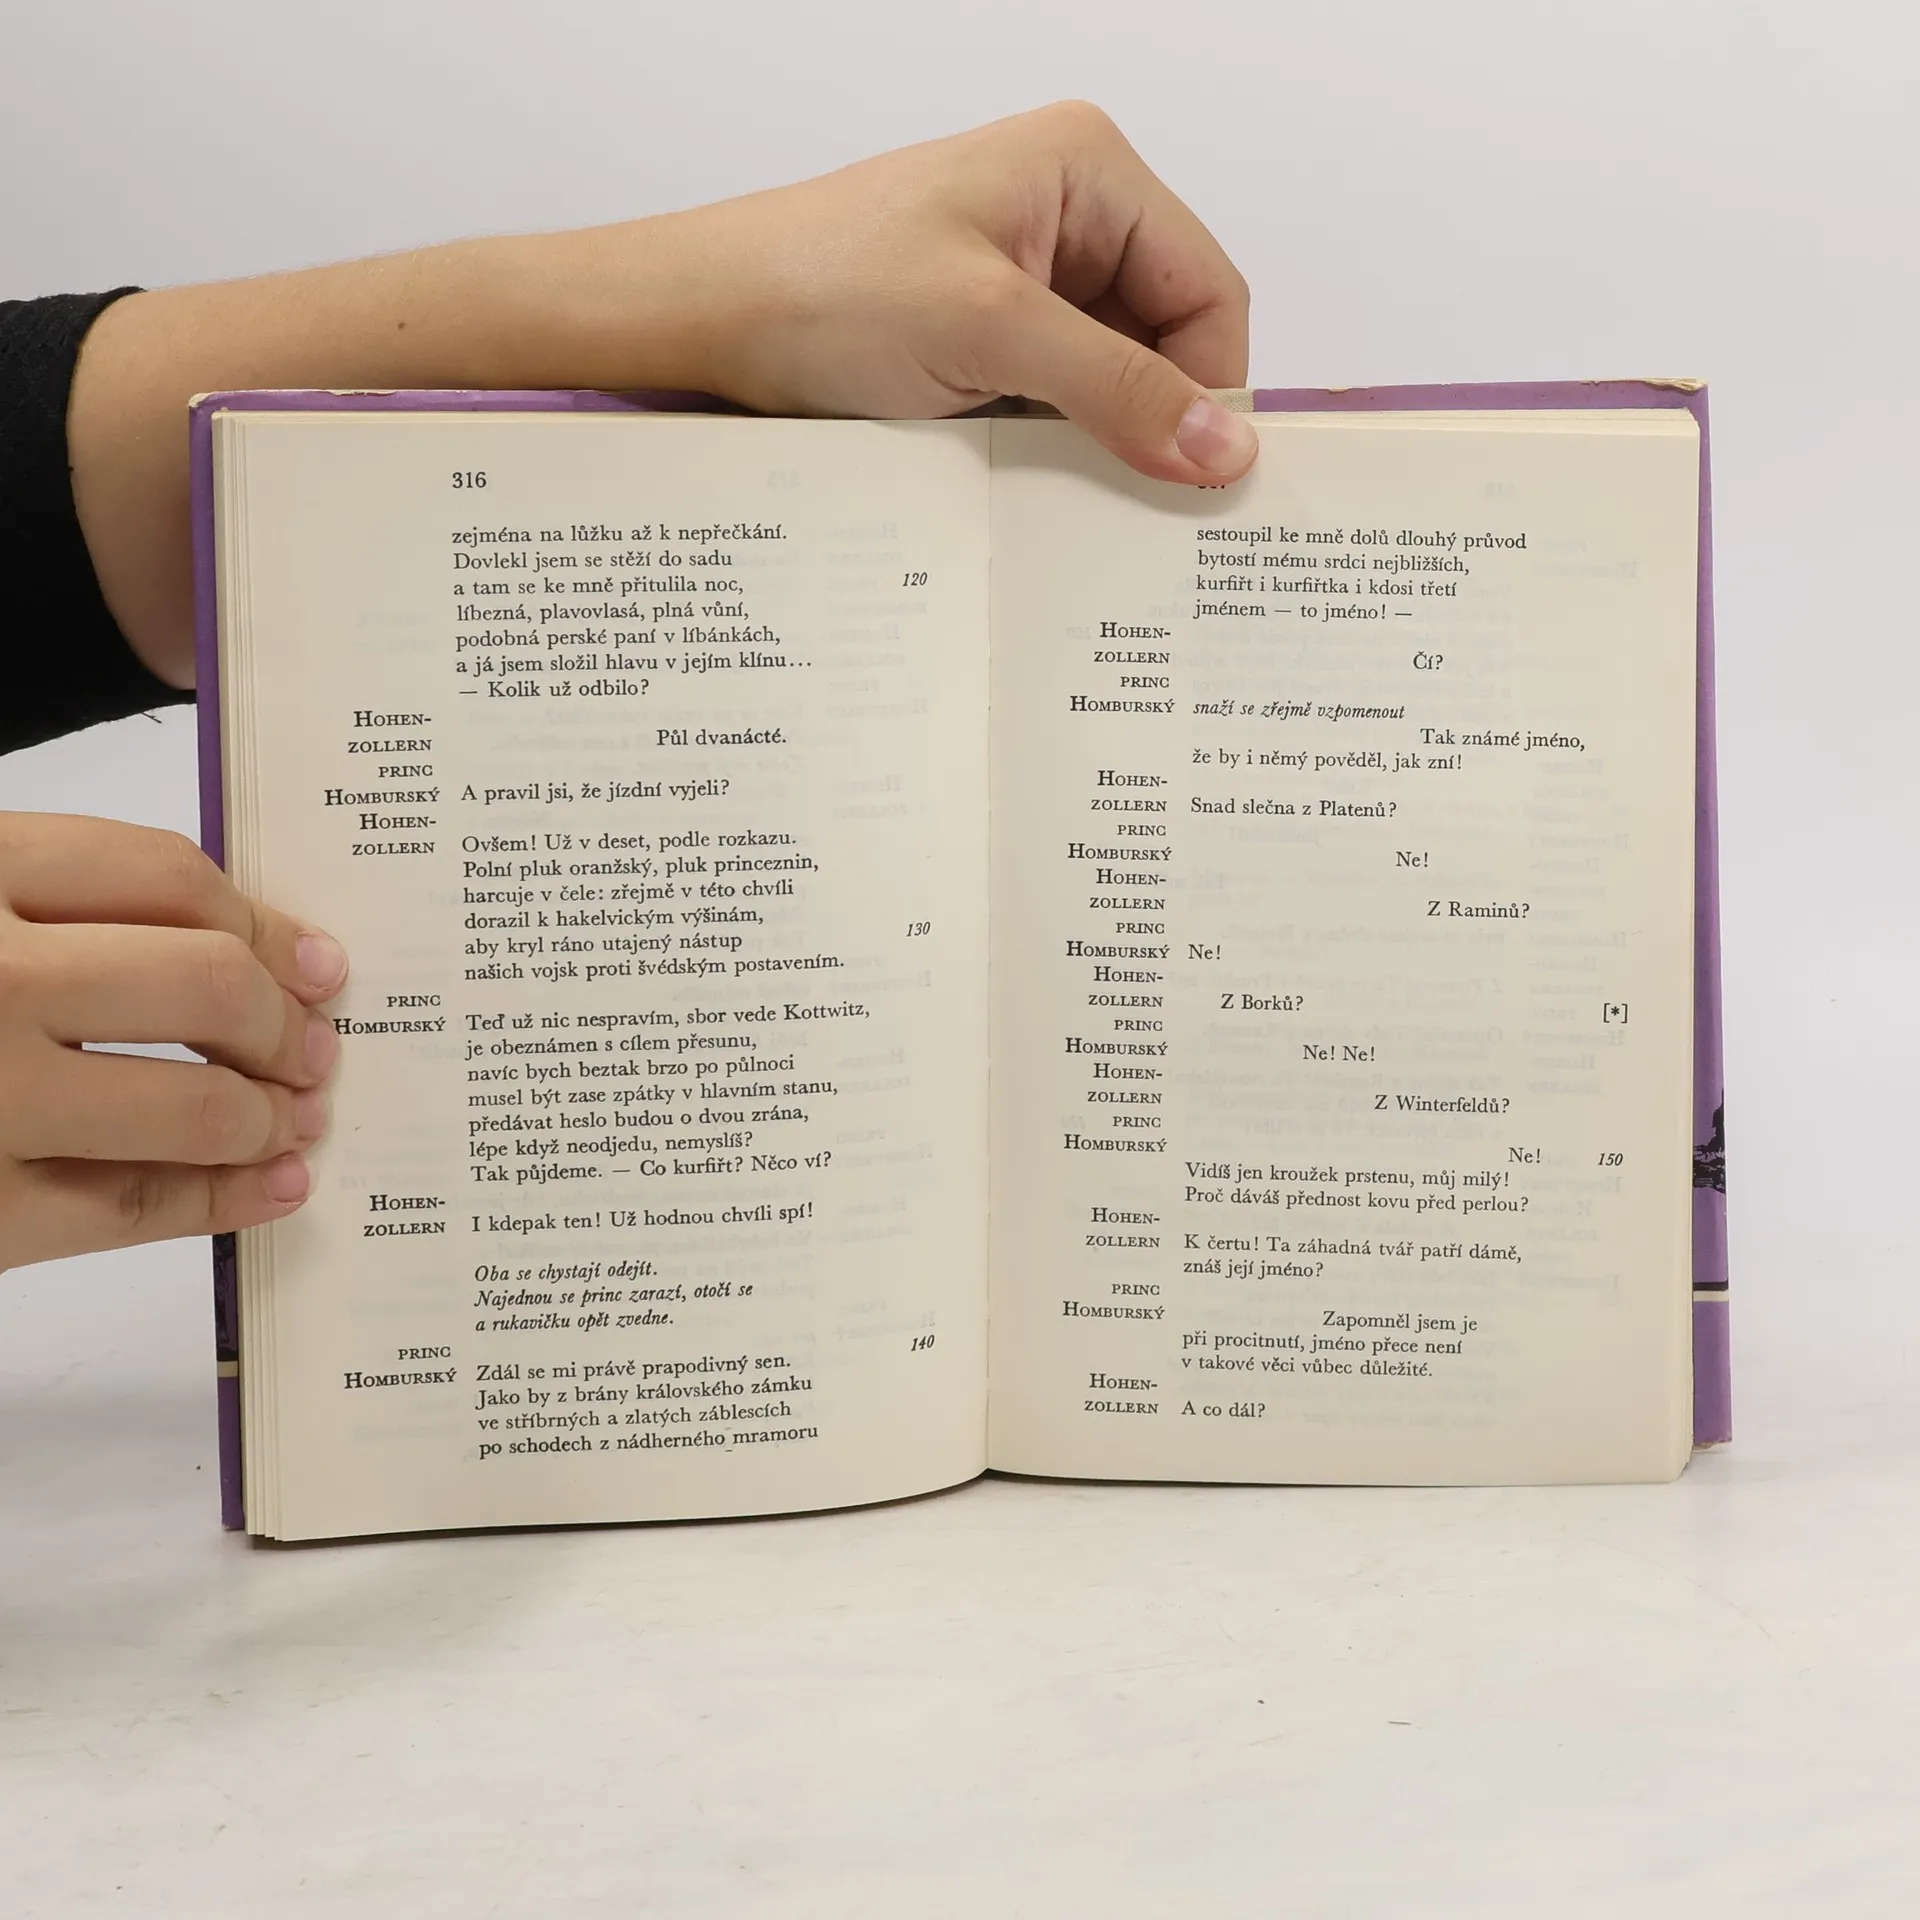 316
zejména na lůžku až k nepřečkání.
Dovlekl jsem se stěží do sadu
a tam se ke mně přitulila noc, 120
líbezná, plavovlasá, plná vůní,
podobná perské paní v líbánkách,
a já jsem složil hlavu v jejím klínu...
— Kolik už odbilo?
HOHEN-
ZOLLERN Půl dvanácté.
PRINC
HOMBURSKÝ A pravil jsi, že jízdní vyjeli?
HOHEN-
ZOLLERN Ovšem! Už v deset, podle rozkazu.
Polní pluk oranžský, pluk princeznin,
harcuje v čele: zřejmě v této chvíli
dorazil k hakelvickým výšinám,
aby kryl ráno utajený nástup 130
našich vojsk proti švédským postavením.
PRINC
HOMBURSKÝ Teď už nic nespravím, sbor vede Kottwitz,
je obeznámen s cílem přesunu,
navíc bych beztak brzo po půlnoci
musel být zase zpátky v hlavním stanu,
předávat heslo budou o dvou zrána,
lépe když neodjedu, nemyslíš?
Tak půjdeme. — Co kurfiřt? Něco ví?
HOHEN-
ZOLLERN I kdepak ten! Už hodnou chvíli spí!
Oba se chystají odejít.
Najednou se princ zarazí, otočí se
a rukavičku opět zvedne.
PRINC 140
HOMBURSKÝ Zdál se mi právě prapodivný sen.
Jako by z brány královského zámku
ve stříbrných a zlatých záblescích
po schodech z nádherného mramoru
sestoupil ke mně dolů dlouhý průvod
bytostí mému srdci nejbližších,
kurfiřt i kurfiřtka i kdosi třetí
jménem — to jméno! —
HOHEN-
ZOLLERN Čí?
PRINC
HOMBURSKÝ snaží se zřejmě vzpomenout
Tak známé jméno,
že by i němý pověděl, jak zní!
HOHEN-
ZOLLERN Snad slečna z Platenů?
PRINC
HOMBURSKÝ Ne!
HOHEN-
ZOLLERN Z Raminů?
PRINC
HOMBURSKÝ Ne!
HOHEN-
ZOLLERN Z Borků? [*]
PRINC
HOMBURSKÝ Ne! Ne!
HOHEN-
ZOLLERN Z Winterfeldů?
PRINC
HOMBURSKÝ Ne! 150
Vidíš jen kroužek prstenu, můj milý!
Proč dáváš přednost kovu před perlou?
HOHEN-
ZOLLERN K čertu! Ta záhadná tvář patří dámě,
znáš její jméno?
PRINC
HOMBURSKÝ Zapomněl jsem je
při procitnutí, jméno přece není
v takové věci vůbec důležité.
HOHEN-
ZOLLERN A co dál?